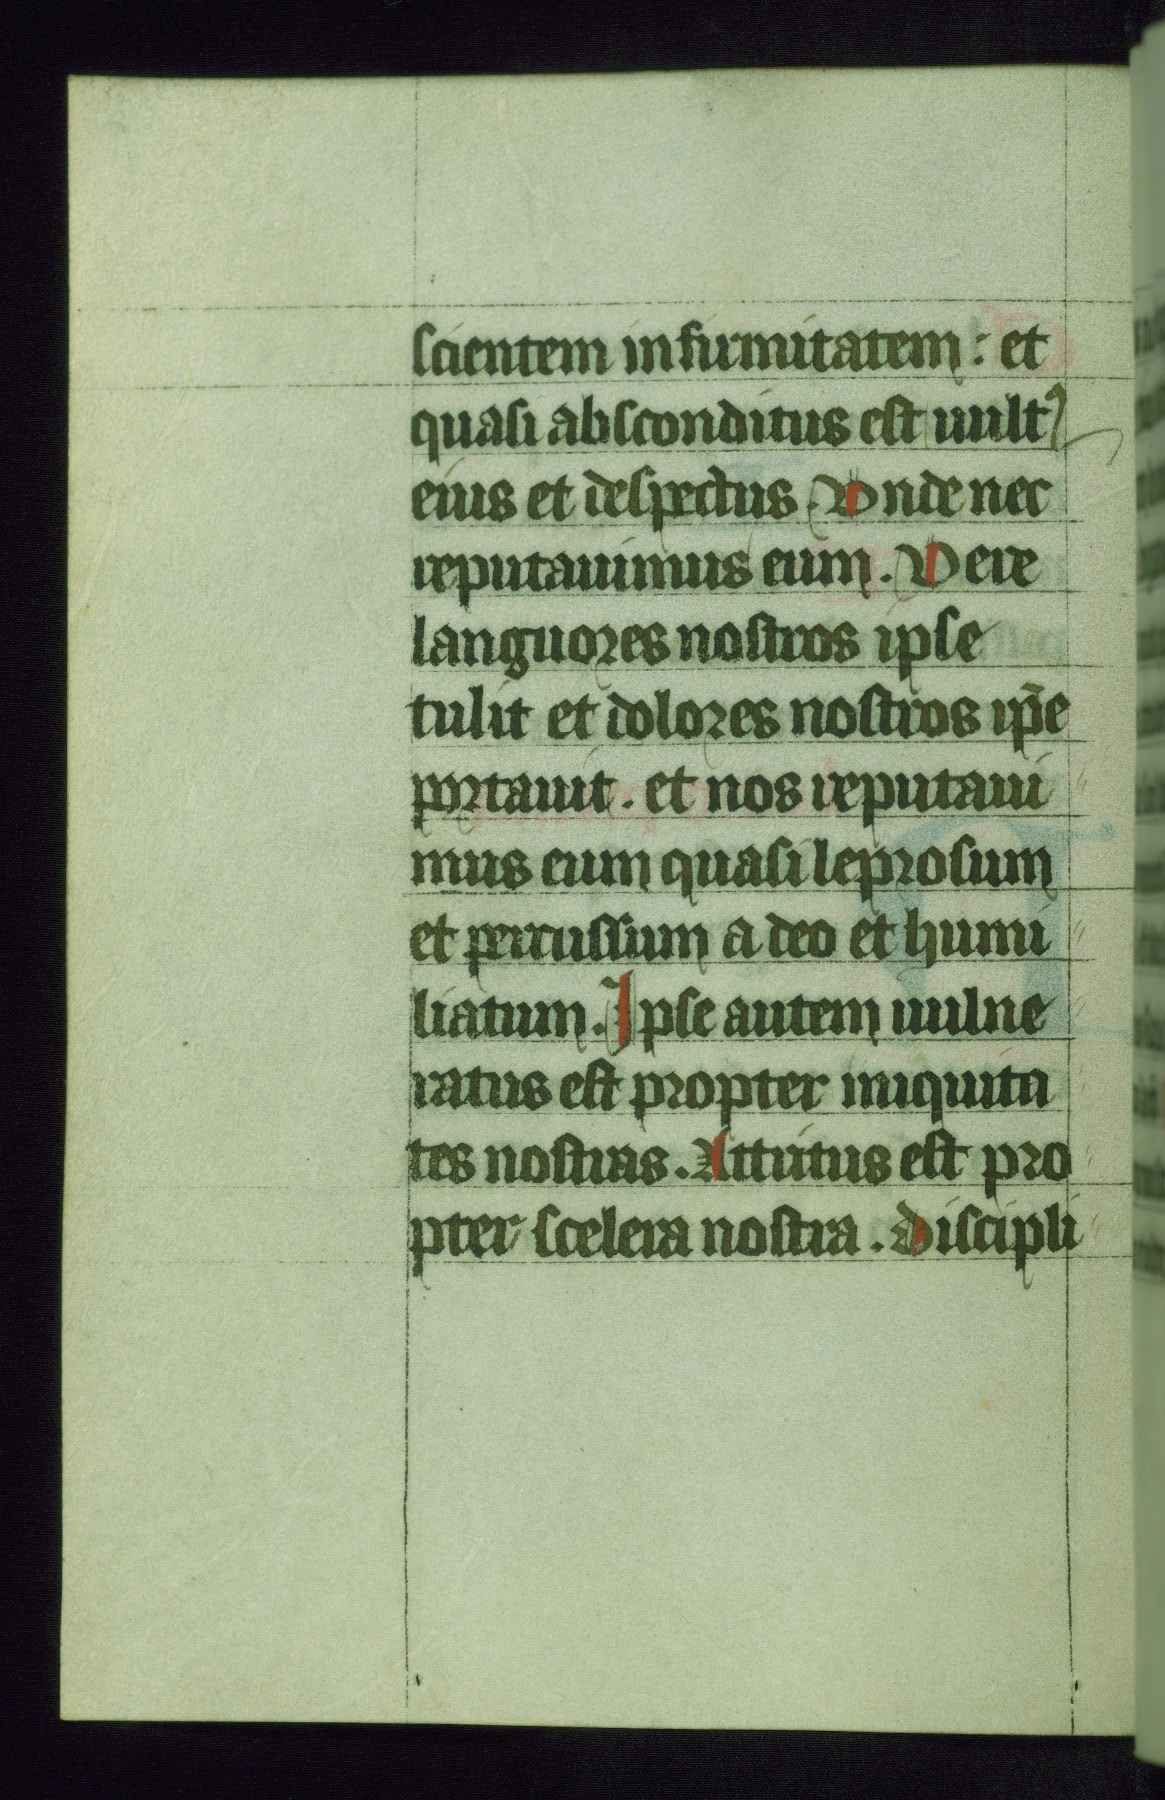 scientem infirmitatem : et
quasi absconditus est uultꝰ
eius et despectus . Vnde nec
reputauimus eum . Vere
languores nostros ipse
tulit et dolores nostros ip̄e
portauit . et nos reputaui
mus eum quasi leprosum
et percussum a deo et humi
liatum . Ipse autem uulne
ratus est propter iniquita
tes nostras . Attritus est pro
pter scelera nostra . Discipli